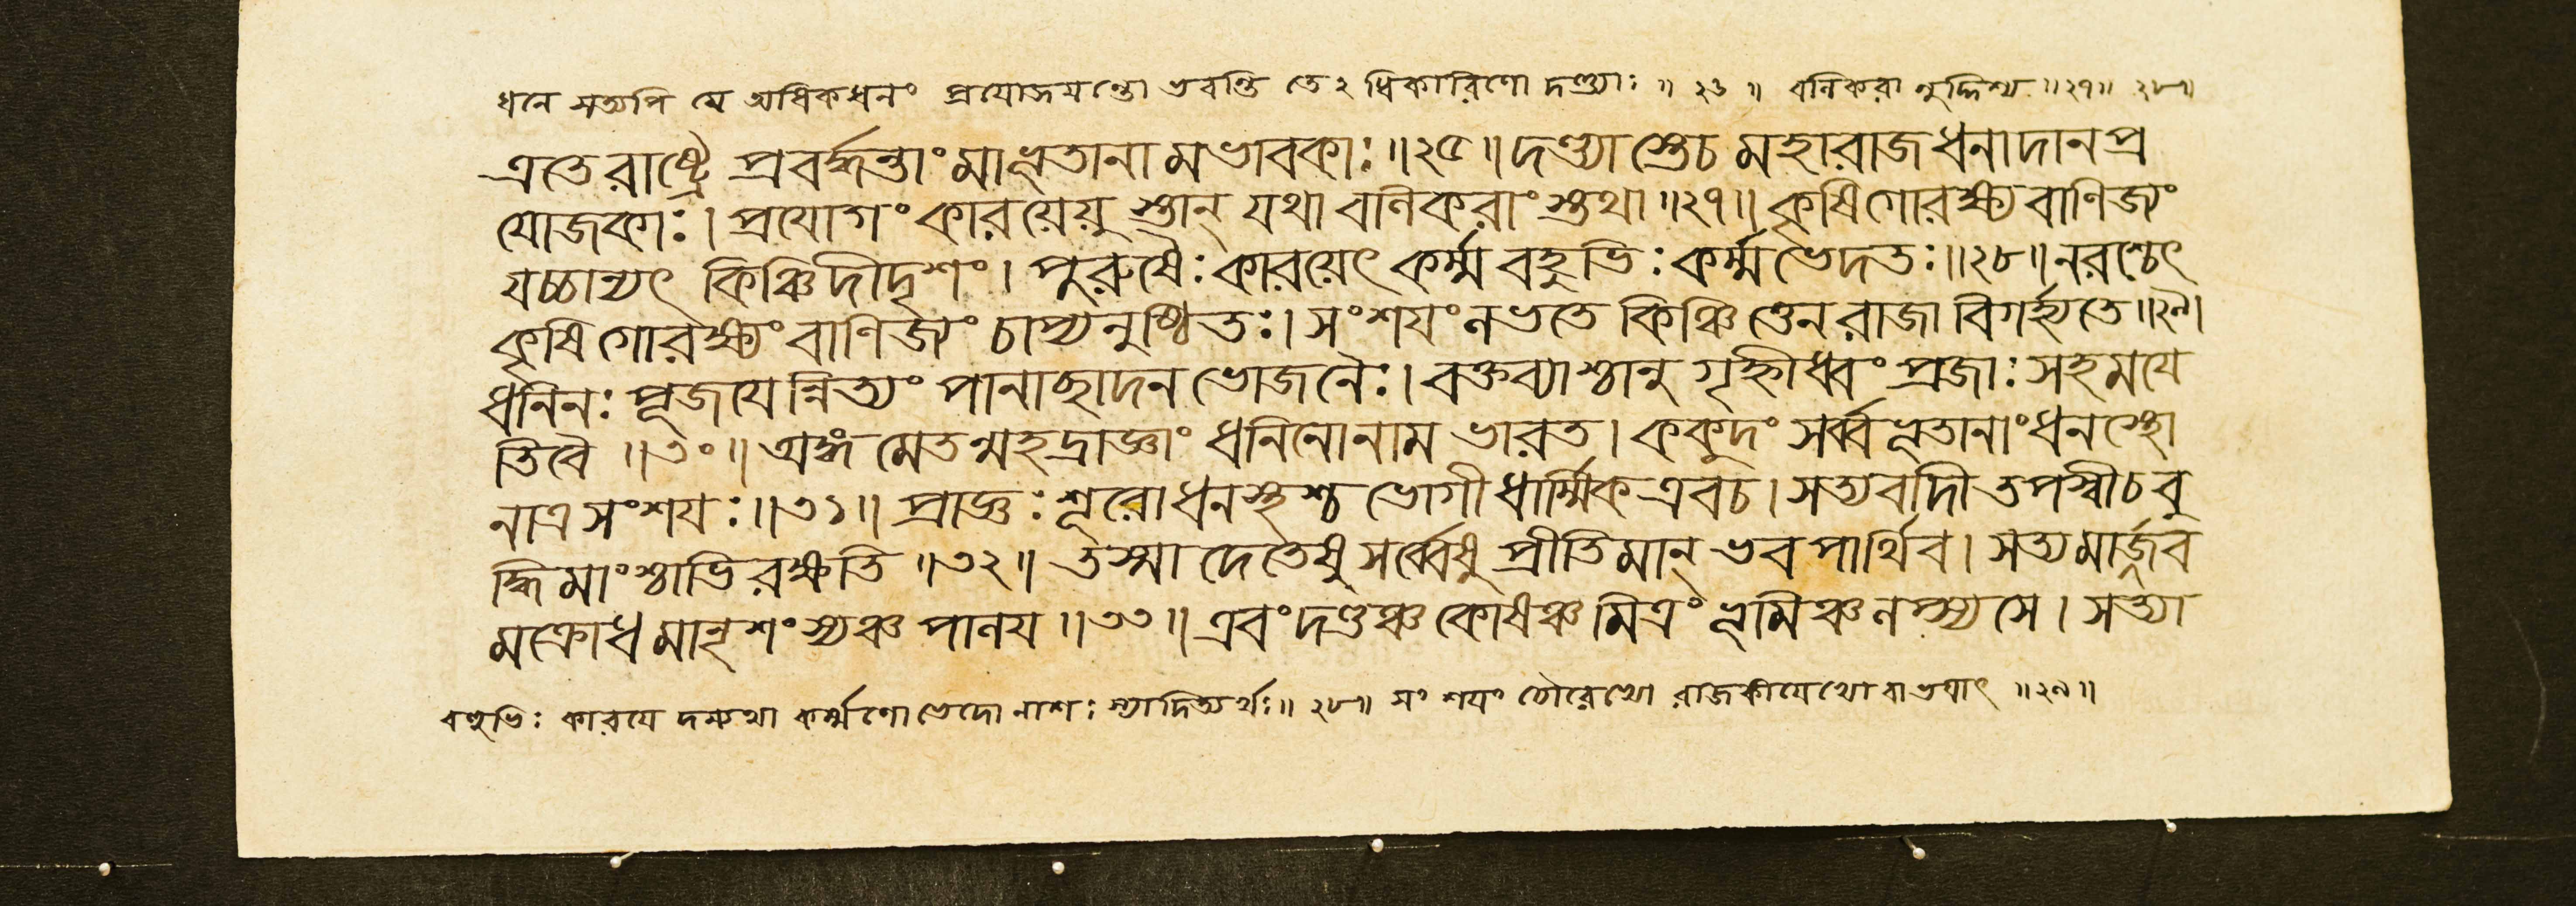 ধনে সত্যপি যে অধিকধনং প্রযোজযন্তো ভবন্তি তেঽ ধিকারিণো দণ্ড্যাঃ ॥ ২৬ ॥ বনিকরা নুদ্দিশ্য ॥২৭॥ ২৮॥
এতে রাষ্ট্রে প্রবর্দ্ধন্তাং মাভূতানা মভাবকাঃ ॥২৫॥ দণ্ড্যা স্তেচ মহারাজ ধনাদান প্র
যোজকাঃ। প্রযোগং কারয়েয়ু স্তান্ যথা বনিকরাং স্তথা ॥২৭॥ কৃষি গোরক্ষ্য বাণিজ্যং
যচ্চান্যৎ কিঞ্চিদীদৃশং। পুরুষৈঃ কারয়েৎ কর্ম্ম বহুভিঃ কর্ম্ম ভেদতঃ ॥২৮॥ নরশ্চেৎ
কৃষি গোরক্ষ্যং বাণিজ্যং চাপ্যনুষ্ঠিতঃ। সংশযং নভতে কিঞ্চি ত্তেন রাজা বিগর্হ্যতে ॥২৯।
ধনিনঃ পূজযে ন্নিত্যং পানাছাদন ভোজনৈঃ। বক্তব্যাশ্চানু গৃহ্নীধ্বং প্রজাঃ সহ মযে
তি বৈ ॥৩০॥ অঙ্গ মেতন্মহদ্রাজ্ঞাং ধনিনোনাম ভারত। ককুদং সর্ব্বভূতানাং ধনস্থো
নাত্র সংশযঃ ॥৩১॥ প্রাজ্ঞঃ শূরো ধনস্থশ্চ ভোগী ধার্ম্মিক এবচ। সত্যবদী তপস্বীচ বু
দ্ধিমাংশ্চাভি রক্ষতি ॥৩২॥ তস্মা দেতেষু সর্ব্বেষু প্রীতিমান্ ভব পার্থিব। সত্য মার্জব
মক্রোধ মানৃশং স্যঞ্চ পানয ॥৩৩॥ এবং দণ্ডঞ্চ কোষঞ্চ মিত্রং ভূমিঞ্চ নপ্স্যসে। সত্যা
বহুভিঃ কারযে দন্যথা কর্ম্মণো ভেদো নাশঃ স্যাদিত্যর্থঃ॥ ২৮॥ সং শযং চৌরেভ্যো রাজকীযেভ্যো বা ভযাৎ ॥২৯॥